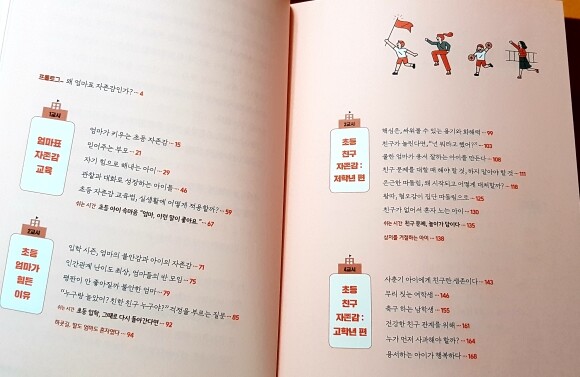 프롤로그_ 왜 엄마표 자존감인가? ··· 4
1교시
엄마표
자존감
교육
엄마가 키우는 초등 자존감 ··· 15
믿어주는 부모 ··· 21
자기 힘으로 해내는 아이 ··· 29
관찰과 대화로 성장하는 아이들 ··· 46
초등 자존감 교육법, 실생활에 어떻게 적용할까? ··· 59
쉬는 시간 초등 아이 속마음 "엄마, 이런 말이 좋아요." ··· 67
2교시
초등
엄마가
힘든
이유
입학 시즌, 엄마의 불안감과 아이의 자존감 ··· 71
인간관계 난이도 최상, 엄마들의 반 모임 ··· 75
평판이 안 좋아질까 불안한 엄마 ··· 79
"누구랑 놀았어? 친한 친구 누구야?" 걱정을 부르는 질문 ··· 85
쉬는 시간 초등 입학, 그때로 다시 돌아간다면 ··· 92
하굣길, 말도 엄마도 혼자였다 ··· 94
3교시
초등
친구
자존감 :
저학년 편
핵심은, 싸워줄 수 있는 용기와 화해력 ··· 99
친구가 놀린다면, "넌 뭐라고 했어?" ··· 103
욱한 엄마가 용서 잘하는 아이를 만든다 ··· 108
친구 문제를 대할 때 해야 할 것, 하지 말아야 할 것 ··· 111
은근한 따돌림, 왜 시작되고 어떻게 대처할까? ··· 118
왕따, 혐오감이 집단 따돌림으로 ··· 125
친구가 없어서 혼자 노는 아이 ··· 130
쉬는 시간 친구 문제, 놀이가 답이다 ··· 135
심의를 거절하는 아이 ··· 138
4교시
초등
친구
자존감 :
고학년 편
사춘기 아이에게 친구란 생존이다 ··· 143
무리 짓는 여학생 ··· 146
축구 하는 남학생 ··· 155
건강한 친구 관계를 위해 ··· 161
누가 먼저 사과해야 할까? ··· 164
용서하는 아이가 행복하다 ··· 168